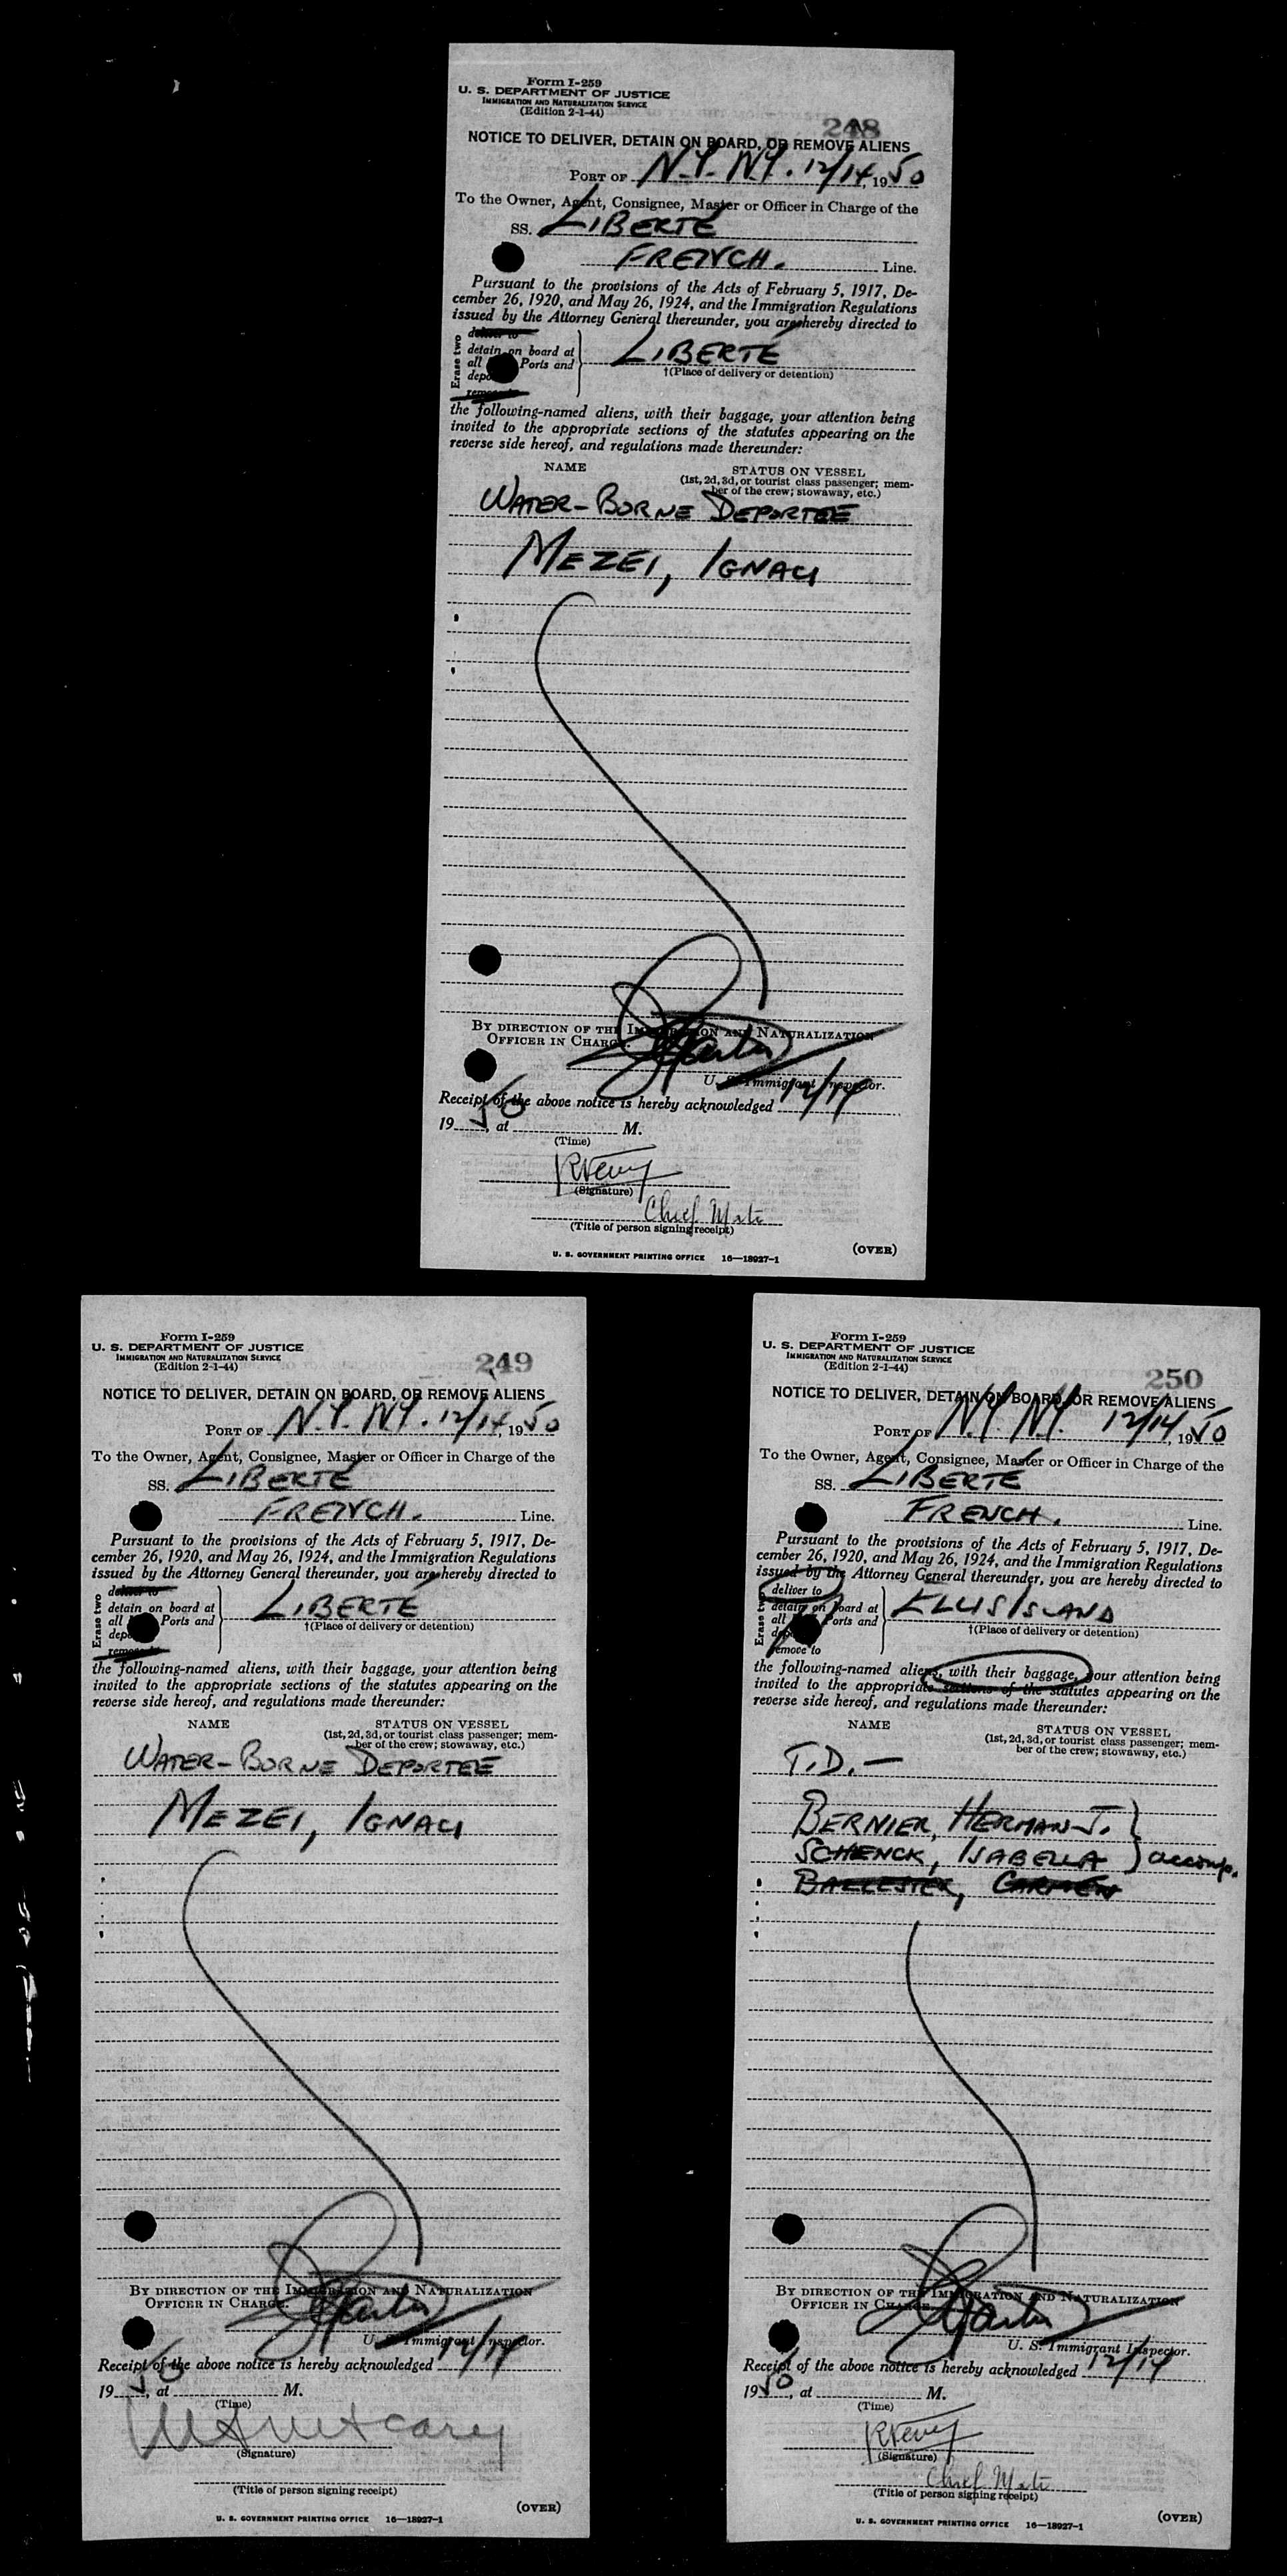 Form I-259
U. S. DEPARTMENT OF JUSTICE
IMMIGRATION AND NATURALIZATION SERVICE
(Edition 2-1-44)
248
NOTICE TO DELIVER, DETAIN ON BOARD, OR REMOVE ALIENS
PORT OF N.Y. N.Y. 12/14, 1950
To the Owner, Agent, Consignee, Master or Officer in Charge of the
SS. LIBERTÉ
FRENCH. Line.
Pursuant to the provisions of the Acts of February 5, 1917, De-
cember 26, 1920, and May 26, 1924, and the Immigration Regulations
issued by the Attorney General thereunder, you are hereby directed to
Erase two
deliver to
detain on board at
all Ports and
LIBERTÉ
†(Place of delivery or detention)
remove to
the following-named aliens, with their baggage, your attention being
invited to the appropriate sections of the statutes appearing on the
reverse side hereof, and regulations made thereunder:
NAME STATUS ON VESSEL
(1st, 2d, 3d, or tourist class passenger; mem-
ber of the crew; stowaway, etc.)
WATER-BORNE DEPORTEE
MEZEI, IGNACI
BY DIRECTION OF THE IMMIGRATION AND NATURALIZATION
OFFICER IN CHARGE.
U. S. Immigrant Inspector.
Receipt of the above notice is hereby acknowledged 12/14
1950, at M.
(Time)
(Signature)
Chief Mate
(Title of person signing receipt)
U. S. GOVERNMENT PRINTING OFFICE 16—18927-1
(OVER)
Form I-259
U. S. DEPARTMENT OF JUSTICE
IMMIGRATION AND NATURALIZATION SERVICE
(Edition 2-1-44)
249
NOTICE TO DELIVER, DETAIN ON BOARD, OR REMOVE ALIENS
PORT OF N.Y. N.Y. 12/14, 1950
To the Owner, Agent, Consignee, Master or Officer in Charge of the
SS. LIBERTÉ
FRENCH. Line.
Pursuant to the provisions of the Acts of February 5, 1917, De-
cember 26, 1920, and May 26, 1924, and the Immigration Regulations
issued by the Attorney General thereunder, you are hereby directed to
Erase two
deliver to
detain on board at
all Ports and
LIBERTÉ
†(Place of delivery or detention)
remove to
the following-named aliens, with their baggage, your attention being
invited to the appropriate sections of the statutes appearing on the
reverse side hereof, and regulations made thereunder:
NAME STATUS ON VESSEL
(1st, 2d, 3d, or tourist class passenger; mem-
ber of the crew; stowaway, etc.)
WATER-BORNE DEPORTEE
MEZEI, IGNACI
BY DIRECTION OF THE IMMIGRATION AND NATURALIZATION
OFFICER IN CHARGE.
U. S. Immigrant Inspector.
Receipt of the above notice is hereby acknowledged 12/14
1950, at M.
(Time)
(Signature)
(Title of person signing receipt)
U. S. GOVERNMENT PRINTING OFFICE 16—18927-1
(OVER)
Form I-259
U. S. DEPARTMENT OF JUSTICE
IMMIGRATION AND NATURALIZATION SERVICE
(Edition 2-1-44)
250
NOTICE TO DELIVER, DETAIN ON BOARD, OR REMOVE ALIENS
PORT OF N.Y. N.Y. 12/14, 1950
To the Owner, Agent, Consignee, Master or Officer in Charge of the
SS. LIBERTÉ
FRENCH. Line.
Pursuant to the provisions of the Acts of February 5, 1917, De-
cember 26, 1920, and May 26, 1924, and the Immigration Regulations
issued by the Attorney General thereunder, you are hereby directed to
Erase two
deliver to
detain on board at
all Ports and
ELLIS ISLAND
†(Place of delivery or detention)
remove to
the following-named aliens, with their baggage, your attention being
invited to the appropriate sections of the statutes appearing on the
reverse side hereof, and regulations made thereunder:
NAME STATUS ON VESSEL
(1st, 2d, 3d, or tourist class passenger; mem-
ber of the crew; stowaway, etc.)
T.D. —
BERNIER, HERMAN J.
SCHENCK, ISABELLA } accomp.
BALLESTER, CARMEN
BY DIRECTION OF THE IMMIGRATION AND NATURALIZATION
OFFICER IN CHARGE.
U. S. Immigrant Inspector.
Receipt of the above notice is hereby acknowledged 12/14
1950, at M.
(Time)
(Signature)
Chief Mate
(Title of person signing receipt)
U. S. GOVERNMENT PRINTING OFFICE 16—18927-1
(OVER)